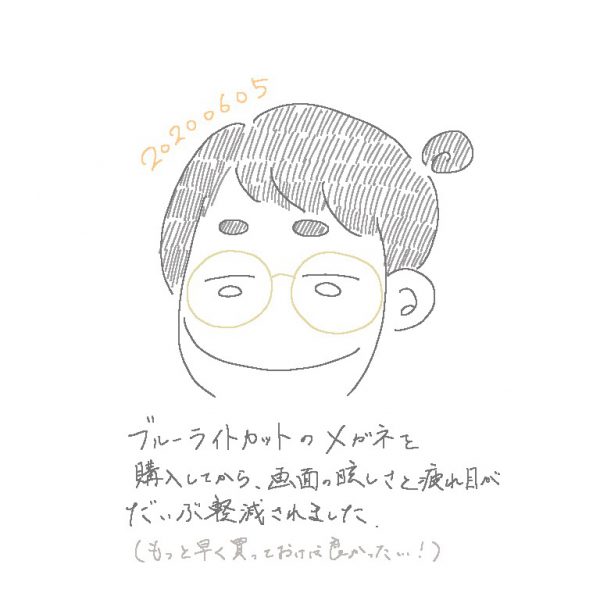 20200605
ブルーライトカットのメガネを
購入してから、画面の眩しさと疲れ目が
だいぶ軽減されました.
(もっと早く買っておけば良かったい!)